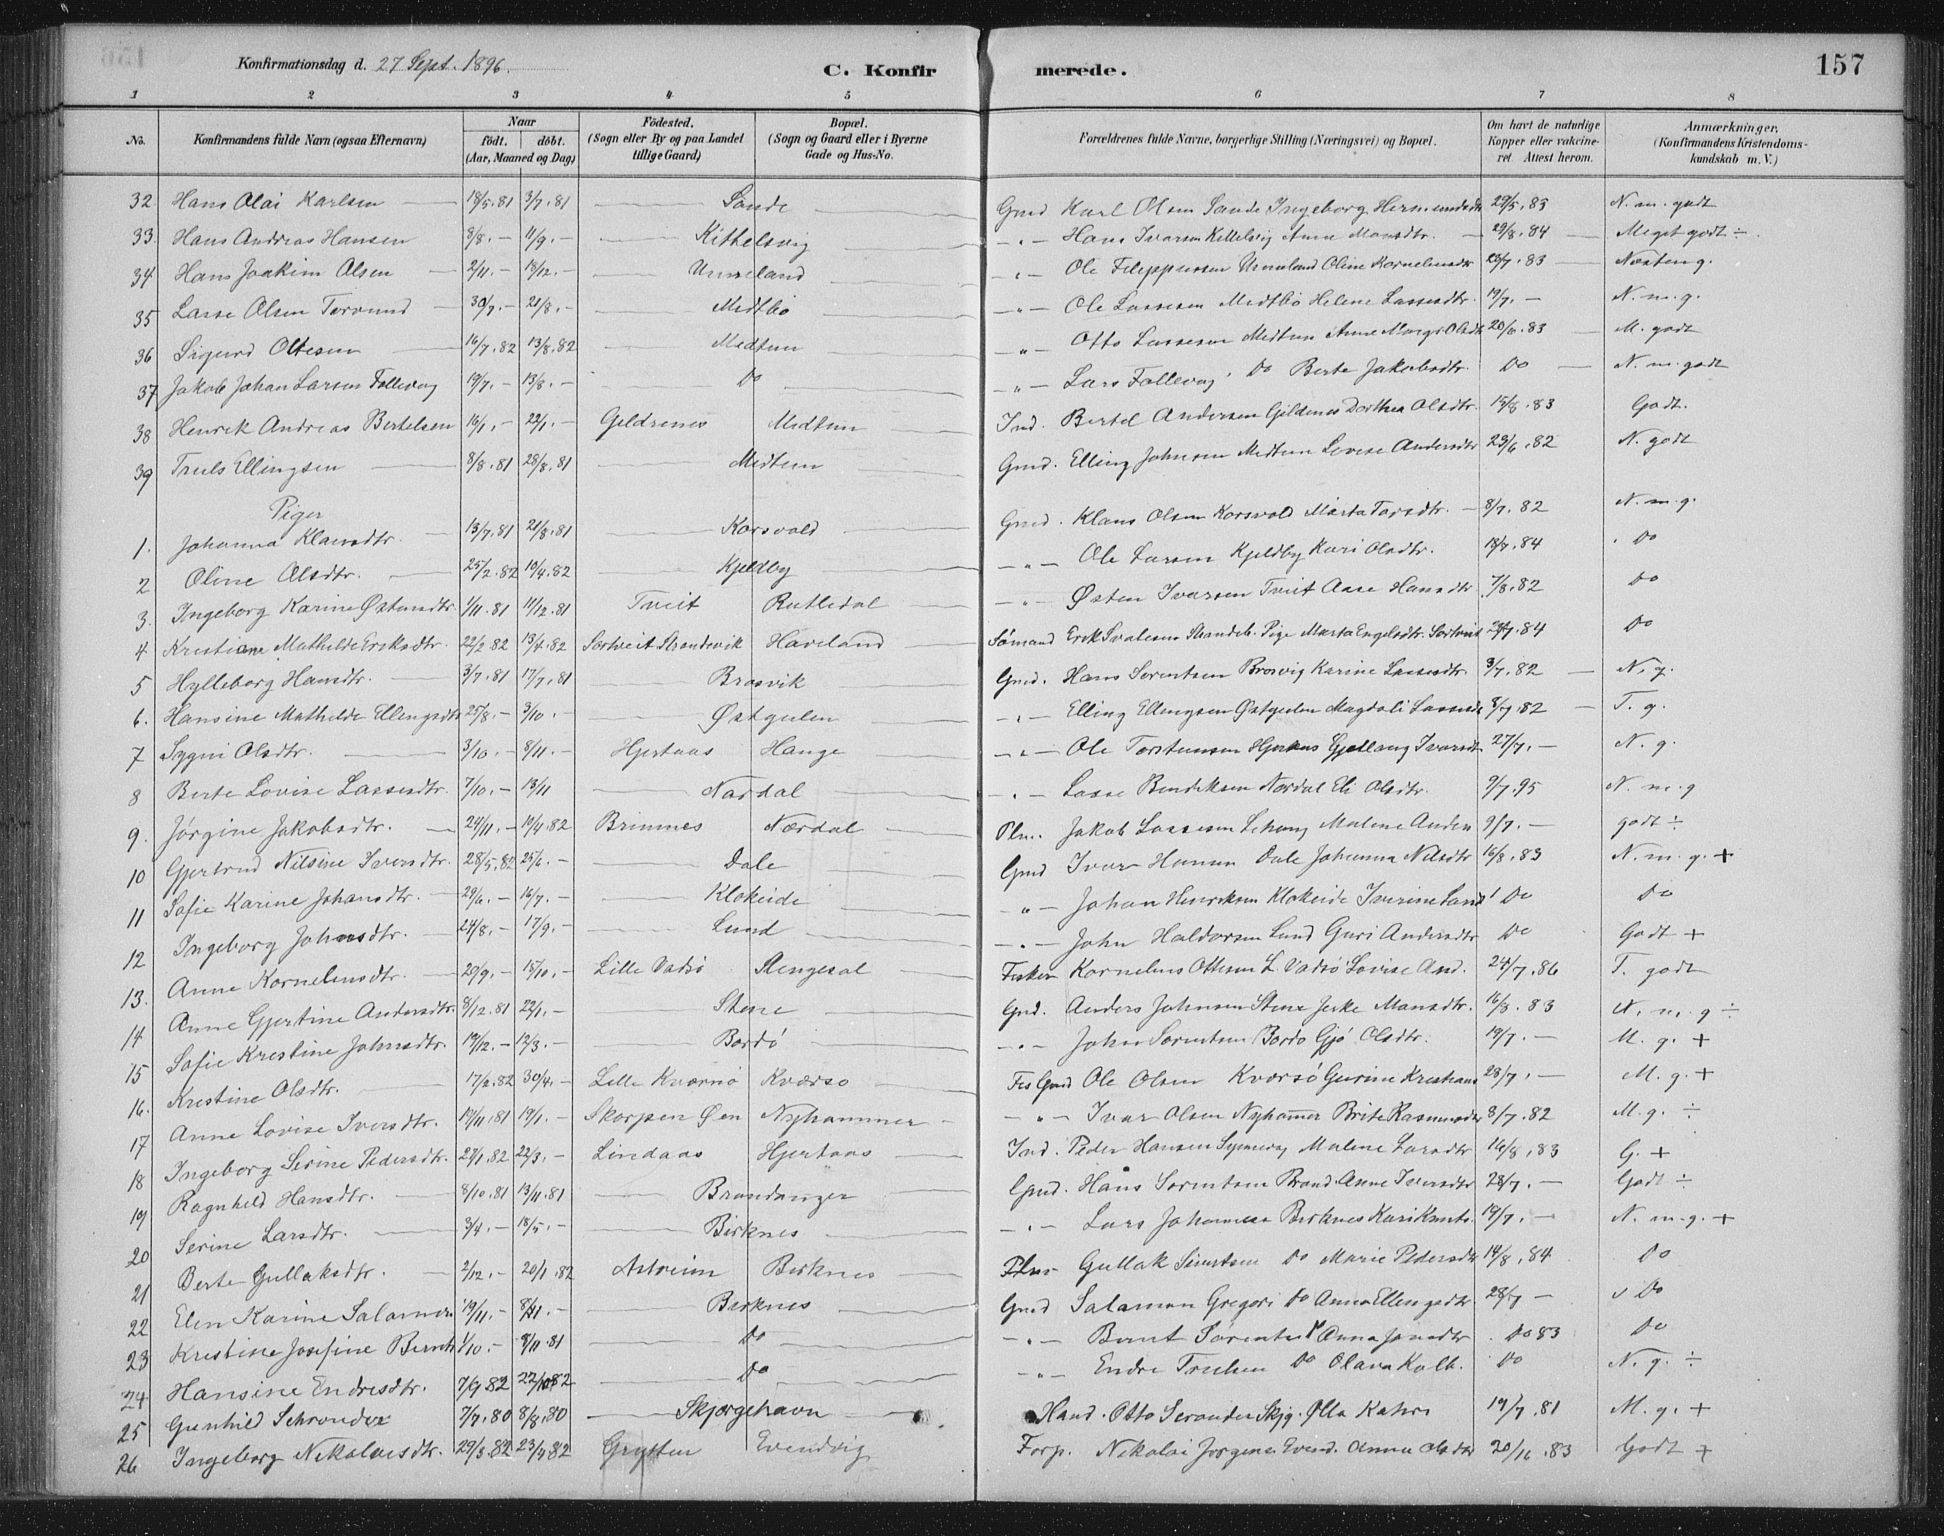 Konfirmationsdag d. 27 Sept. 1896. C. Konfirmerede. 157
1 2 3 4 5 6 7 8
No. Konfirmandens fulde Navn (ogsaa Efternavn) Naar født. døbt. (Aar, Maaned og Dag) Fødested. (Sogn eller By og paa Landet tillige Gaard) Bopæl. (Sogn og Gaard eller i Byerne Gade og Hus-No. Forældrenes fulde Navne, borgerlige Stilling (Næringsvei) og Bopæl. Om havt de naturlige Kopper eller vakcineret. Attest herom. Anmærkninger. (Konfirmandens Kristendomskundskab m. V.)
32 Hans Olai Karlsen 18/5.81 3/7.81 Sande Gmd Karl Olsen Sande Ingeborg 29/5.83 N. m. godt
33. Hans Andreas Hansen 8/8.- 11/9.- Kittelsvig -"- Hans Ivarsen Kittelsvig Anne Monsdtr. 29/8.84 Meget godt ÷
34 Hans Joakim Olsen 2/11.- 18/12.- -"- Ole Olsen Oline Kornelius dtr 23/7.83 Næsten g.
35 Lasse Olsen Torvund 30/7.- 21/8.- Midtbö -"- Ole Lassesen Midtbö Helene Lassesdtr. 19/7.- N. m. g.
36 Sigurd Ottesen 16/7.82 13/8.82 Midtun -"- Otto Lassesen Midtun Anne 83 M. godt
37 Jakob Johan Larsen Follevag 19/7.- 13/8.- Do -"- Lars Follevag Do Berte Jakobsdtr. Do N. m. godt
38 Henrik Andreas Bertelsen 16/1.- 22/1.- Geldrenes Midtun Ind. Bertel Andersen Gildenes Dorthea Olsdtr. 15/8.83 Godt.
39 Truls Ellingsen 8/8.81 28/8.81 Midtun Gmd. Elling Johnsen Midtun Lovise Andersdtr 23/6.82 N. godt
Piger
1. Johanna Klausdtr. 13/7.81 21/8.81 Korsvold Gmd. Klaus Olsen Korsvold Marta 8/7.82 N. m. g.
2 Oline Olsdtr. 25/2.82 10/4.82 Kjeldby -"- Ole Larsen Kjeldby Kari Olsdtr. 18/7.84 Do
3. Ingeborg Karine Østensdtr. 1/11.81 11/12.81 Tveit Rutledal -"- Østen Ivarsen Tveit Aase Hansdtr 7/8.82 Do
4 Kristiane Mathilde Eriksdtr. 22/2.82 13/4.82 Sørtveit Strandevik Haveland Sømand Erik Pige Marta Engelsdtr. 84 Do
5 Hylleborg Hansdtr. 3/7.81 17/7.81 Brosvik Gmd. Hans Sorentsen Brosvig Karine Lassesdtr. 3/7.82 N. g.
6. Hansine Mathilde Ellingsdtr 25/8.- 3/10.- Østgulen -"- Elling Ellingsen Østgulen Magdali 8/7.82 T. g.
7 Sygni Olsdtr. 3/10.- 8/11.- Hjertaas Hauge -"- Ole Torstensen Ivarsdtr 27/7.- N. g.
8 Berte Lovise Lassesdtr. 7/10.- 13/11 Nordal -"- Lasse Bendiksen Nordal Eli Olsdtr. 9/7.95 N. m. g
9. Jørgine Jakobsdtr. 24/11.- 10/4.82 Brimnes Nærdal Jakob Lassesen Malene 9/7.- godt ÷
10 Gjertrud Nilsine Iversdtr. 28/5.82 25/6.- Dale Gmd Ivar Dale Johanna Nilsdtr 16/8.83 N. m. g. +
11 Sofie Karine Johansdtr. 29/6.- 16/7.- Klokeide -"- Johan Henriksen Klokeide Do Do
12 Ingeborg Johnsdtr. 24/8.- 17/9.- Lund -"- John Haldorsen Lund Guri Andersdtr Do Godt +
13. Anne Kornelius dtr. 20/9.- 15/10.- Lille Vadsö Fisker Kornelius Ottesen L. Vadsö Lovise And. 24/7.86 T. godt
14 Anne Gjertine Andersdtr. 8/12.81 22/1.- Stene Gmd. Anders Johnsen Stene Monsdtr. 16/8.83 N. m. g ÷
15 Sofie Kristine Johnsdtr. 19/12.- 12/3.- Bordö -"- John Sorentsen Bordö Gjö Olsdtr. 19/7.- M. g. +
16. Kristine Olsdtr. 17/2.82 30/4.- Lille Kværnö Kværsö Fis Gmd Ole Olsen Kværsö Gurine 28/7.- M. g. +
17 Anne Lovise Iversdtr. 19/11.81 19/1.- Skorpen Øen Nyhammer -"- Ivar Olsen Nyhamer Brite Rasmusdtr 8/7.82 M. g. ÷
18 Ingeborg Serine Pedersdtr. 27/1.82 22/3.- Lindaas Hjertaas Ind. Peder Hansen Malene Larsdtr 16/8.83 G. +
19 Ragnhild Hansdtr. 8/10.81 13/11.81 Brandanger Gmd. Hans Sorentsen Brand. Anne Iversdtr 28/7.- Godt ÷
20 Serine Larsdtr. 3/4.- 18/5.- Birknes -"- Lars Birknes Kari 19/7.- N. m. g. +
21 Berte Gullaksdtr. 2/12.- 20/1.82 Birknes Gullak Sivertsen Do Marie Pedersdtr 14/8.84 Do
22 Elen Karine Salamon 19/11.- Birknes Gmd Salamon Gregori Do Anna Ellingsdtr. 28/7- Do
23 Kristine Josefine Bernt 1/10.- 8/11.81 Do -"- Bernt Do Anna Do 83 Do
24 Hansine Endresdtr. 7/9.82 Do -"- Endre Trulsen Do Olava Do N. g. ÷
25 Gunhild Schrøuder 7/7.80 8/8.80 Skjærgehavn Hand. Otto 19/7.81 M. g. +
26 Ingeborg Nikolaisdtr. 29/3.82 23/4.82 Grytten Evendvig Forp. Nikolai Evend. Anna Olsdtr 83 Godt +